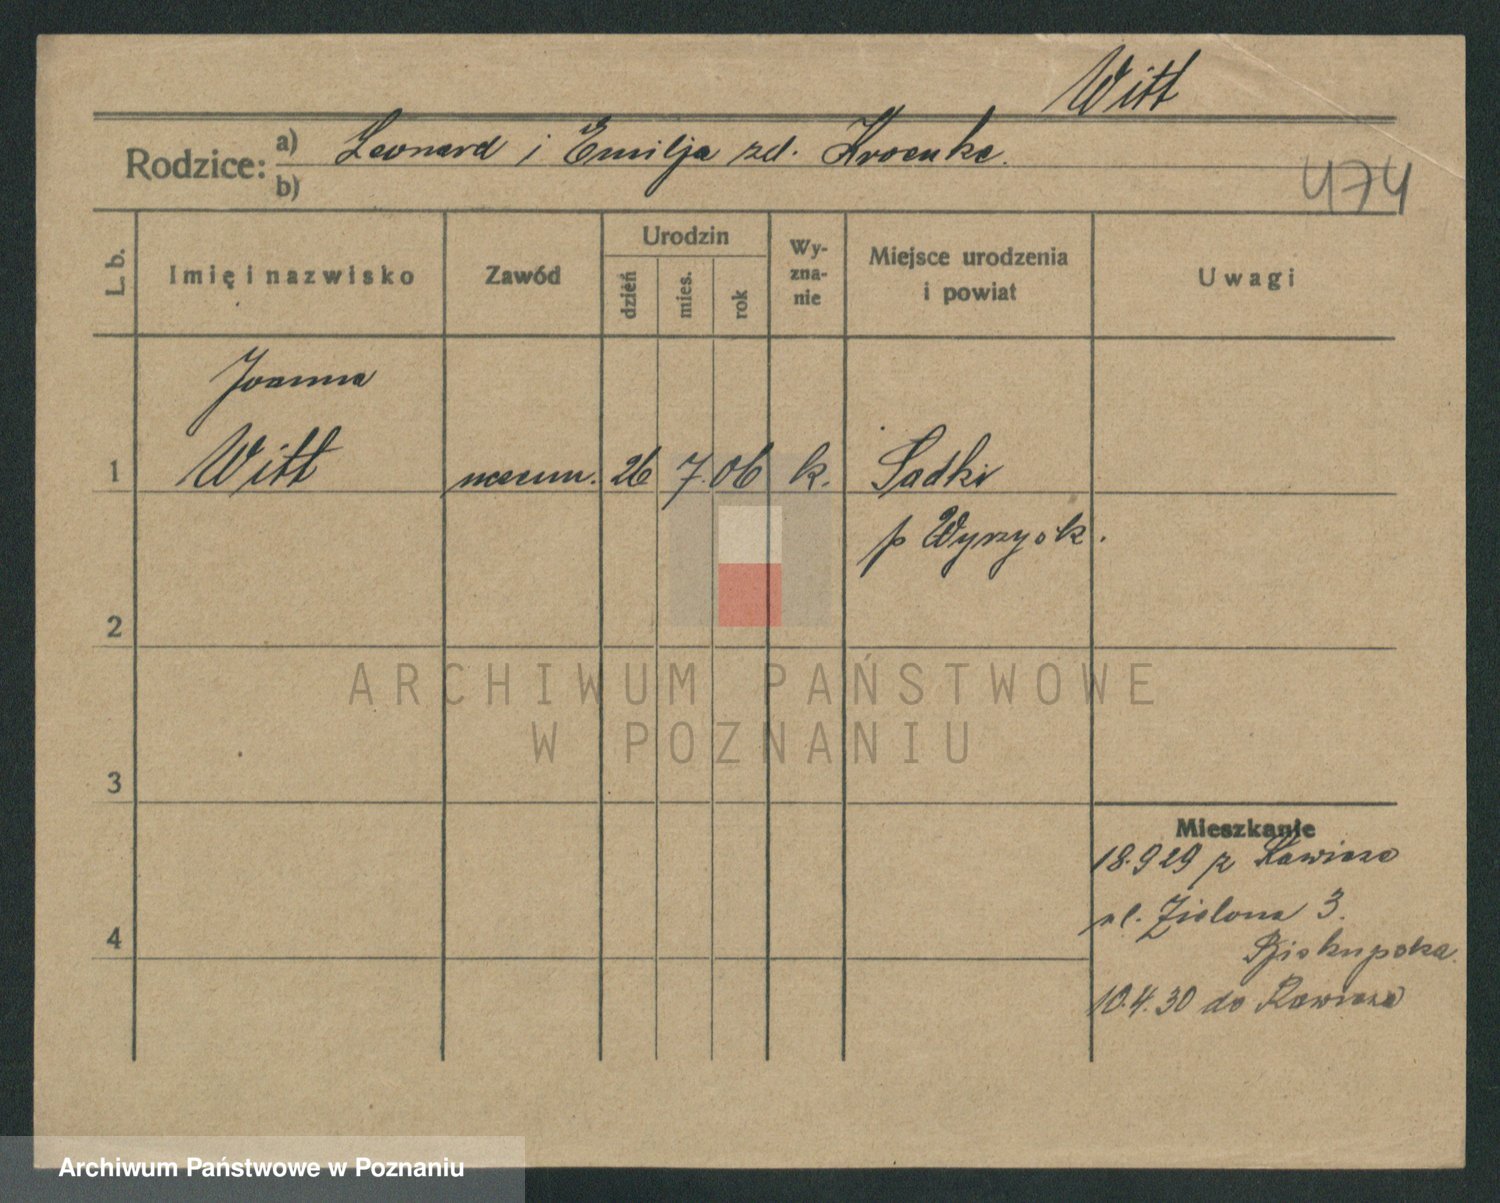 Witt
Rodzice: a) Leonard i Emilja zd. Kroenke.
b)
474
L. b. Imię i nazwisko Zawód Urodzin dzień mies. rok Wy-zna-nie Miejsce urodzenia i powiat Uwagi
Joanna
1 Witt 26 7. 06 k. Sadki
p Wyrzysk.
2
ARCHIWUM PAŃSTWOWE
W POZNANIU
3
Mieszkanie
18.9 29 z Rawicza
ul. Zielona 3.
4 Biskupska
10.4.30 do Rawicza
Archiwum Państwowe w Poznaniu